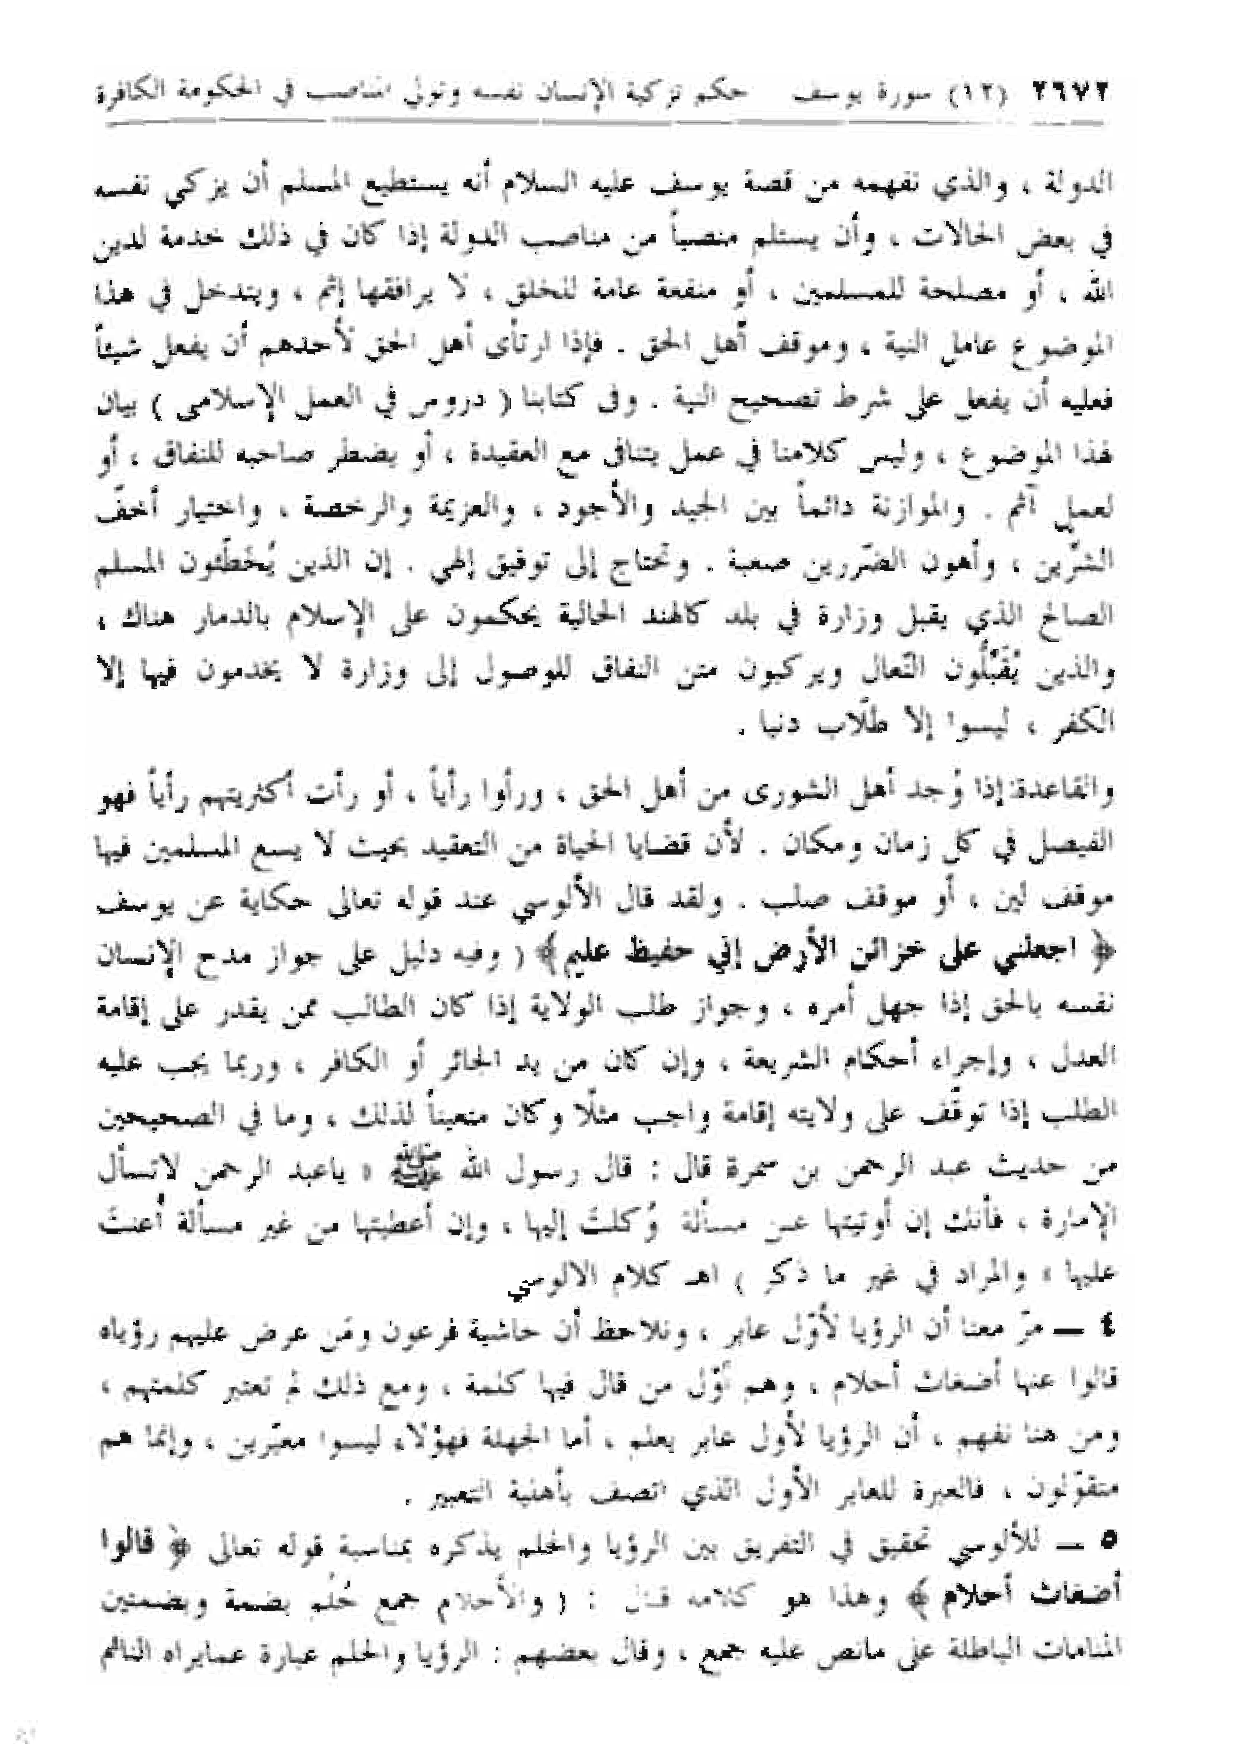 ٢٦٧٢ (١٢) سورة يوسف حكم تزكية الإنسان نفسه وتولي المناصب في الحكومة الكافرة
الدولة ، والذي نفهمه من قصة يوسف عليه السلام أنه يستطيع المسلم أن يزكي نفسه
في بعض الحالات ، وأن يستلم منصباً من مناصب الدولة إذا كان في ذلك خدمة لدين
الله ، أو مصلحة للمسلمين ، أو منفعة عامة للخلق ، لا يرافقها إثم ، ويتدخل في هذا
الموضوع عامل النية ، وموقف أهل الحق . فإذا ارتأى أهل الحق لأحدهم أن يفعل شيئاً
فعليه أن يفعل على شرط تصحيح النية . وفي كتابنا ( دروس في العمل الإسلامي ) بيان
لهذا الموضوع ، وليس كلامنا في عمل يتنافى مع العقيدة ، أو يضطر صاحبه للنفاق ، أو
لعمل آثم . والموازنة دائماً بين الجيد والأجود ، والعزيمة والرخصة ، واختيار أخفّ
الشرّين ، وأهون الضّررين صعبة . وتحتاج إلى توفيق إلهي . إن الذين يُخَطّئون المسلم
الصالح الذي يقبل وزارة في بلد كالهند الحالية يحكمون على الإسلام بالدمار هناك ،
والذين يُقَبّلُون النّعال ويركبون متن النفاق للوصول إلى وزارة لا يخدمون فيها إلا
الكفر ، ليسوا إلا طلّاب دنيا .
والقاعدة: إذا وُجد أهل الشورى من أهل الحق ، ورأوا رأياً ، أو رأت أكثريتهم رأياً فهو
الفيصل في كل زمان ومكان . لأن قضايا الحياة من التعقيد بحيث لا يسع المسلمين فيها
موقف لين ، أو موقف صلب . ولقد قال الألوسي عند قوله تعالى حكاية عن يوسف
﴿ اجعلني على خزائن الأرض إني حفيظ عليم ﴾ ( وفيه دليل على جواز مدح الإنسان
نفسه بالحق إذا جهل أمره ، وجواز طلب الولاية إذا كان الطالب ممن يقدر على إقامة
العدل ، وإجراء أحكام الشريعة ، وإن كان من يد الجائر أو الكافر ، وربما يجب عليه
الطلب إذا توقّف على ولايته إقامة واجب مثلًا وكان متعيناً لذلك ، وما في الصحيحين
من حديث عبد الرحمن بن سمرة قال : قال رسول الله ﷺ « ياعبد الرحمن لاتسأل
الإمارة ، فأنك إن أوتيتها عن مسألة وُكلتَ إليها ، وإن أعطيتها من غير مسألة أُعنتَ
عليها » والمراد في غير ما ذكر ) اهـ كلام الالوسي
٤ ــ مرّ معنا أن الرؤيا لأوّل عابر ، ونلاحظ أن حاشية فرعون ومَن عرض عليهم رؤياه
قالوا عنها أضغاث أحلام ، وهم أوّل من قال فيها كلمة ، ومع ذلك لم تعتبر كلمتهم ،
ومن هنا نفهم ، أن الرؤيا لأول عابر بعلم ، أما الجهلة فهؤلاء ليسوا معبّرين ، وإنما هم
متقوّلون ، فالعبرة للعابر الأول الذي اتصف بأهلية التعبير .
٥ ــ للألوسي تحقيق في التفريق بين الرؤيا والحلم يذكره بمناسبة قوله تعالى ﴿ قالوا
أضغاث أحلام ﴾ وهذا هو كلامه قال : ( والأحلام جمع حُلُم بضمة وبضمتين
المنامات الباطلة على مانص عليه جمع ، وقال بعضهم : الرؤيا والحلم عبارة عمايراه النائم